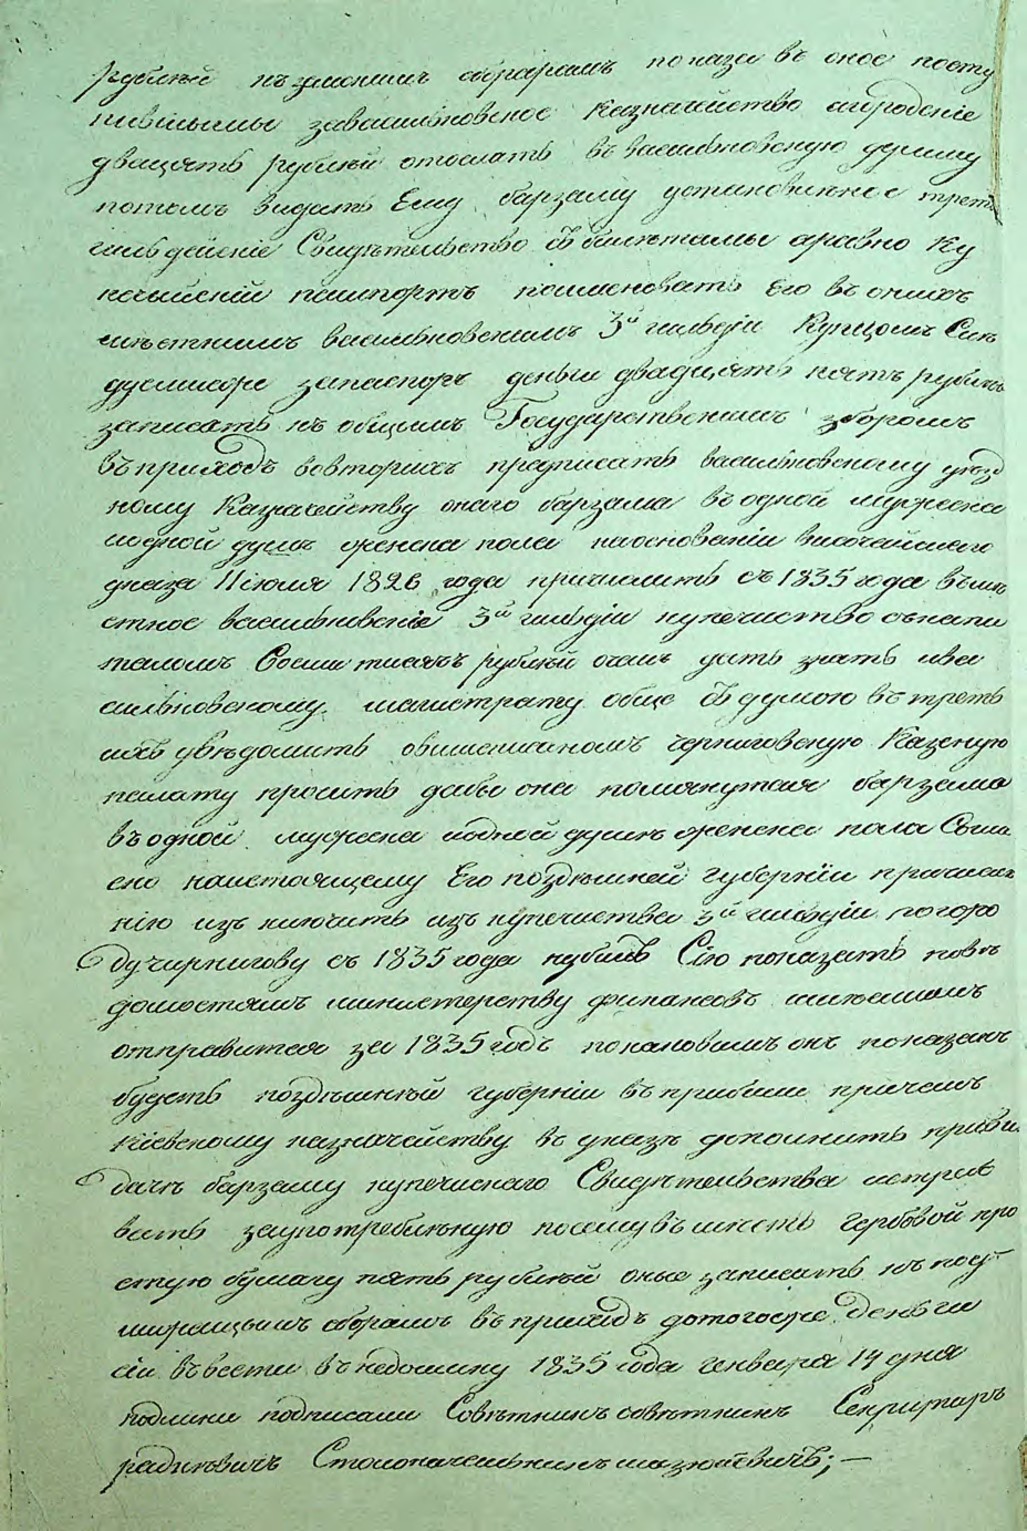 рублей къ земскимъ сборамъ показа въ оное посту
пившимы завасильковское казначейство агродскіе
двацять рублей отослать въ васильковскую думу
потомъ видать Ему барзаму установленное трет
гильдейскіе Свидѣтельство съ билѣтамы аравно Ку
печыйскій пашпортъ поименовать Его въ онихъ
мѣстнимъ васильковскимъ 3й гильдіи Купцомъ Слѣ
дуемиоре запаспорт деньги двадцять пять рублей
записать къ общимъ Государственнимъ зборомъ
въ приходъ вовторихъ предписать васильковскому уѣзд
ному Казначейству онаго барзама въ одной мужеска
иодной душъ женска пола наоснованіи височайшаго
указа 11 іюля 1826 года причислить съ 1835 года въ мѣ
стное васильковскіе 3й гильдіи купечиство съ капи
таломъ Восми тисячъ рублей очемъ дать знать ива
сильковскому магистрату обще съ думою въ треть
ихъ увѣдомить овишеписаномъ черниговскую Казеную
палату просить дабы она помянутая барзама
въ одной мужеска иодной душѣ женска пола Согла
сно настоящему Его поздѣшней губерніи причисле
нію изъ ключить изъ купечиства 3й гильдіи погоро
ду чирнигову съ 1835 года кубиль Сію показать повѣ
домостямъ министерству финансовъ имѣемимъ
отправится за 1835 годъ покаковимъ онъ показанъ
будеть поздѣшнѣй губерніи въ прибили причемъ
Кіевскому казначейству въ указѣ дополнить при ви
дачѣ барзаму купечискаго Свидѣтельства истребо
вать заупотребльную посемувъ мѣсть гербовой про
стую бумагу пять рублей оные записать къ посу
мираицимъ сборамъ въ приходъ дотогоже деньги
сіи въвести въ недоимку 1835 года генваря 14 дня
подлини подписали Совѣтникъ совѣтникъ Секритарь
радкѣвичъ Столоначальникъ мазюкевичъ;—